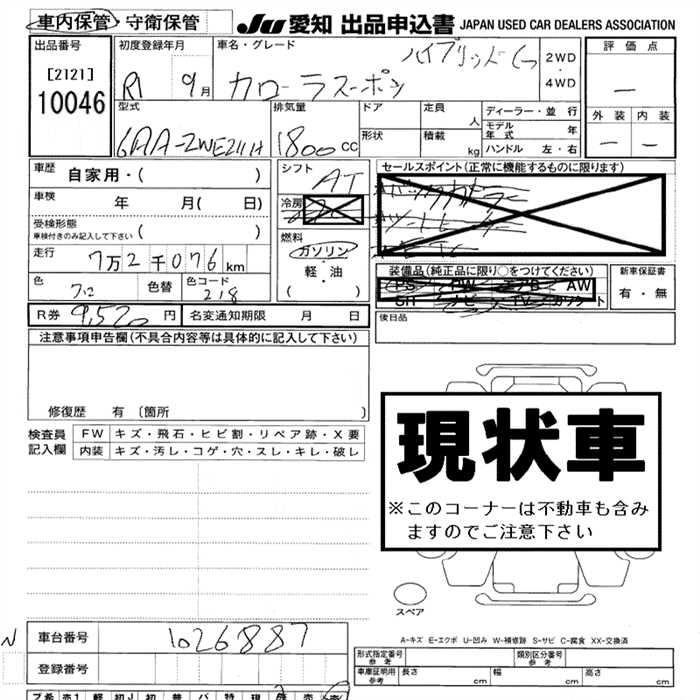 車内保管・守衛保管 JU 愛知 出品申込書 JAPAN USED CAR DEALERS ASSOCIATION
出品番号 [2121] 10046
初度登録年月 R1 9月
車名・グレード ハイブリッド
カローラスーポツ
2WD・4WD
評価点 —
外装 — 内装 —
型式 6AA-ZWE211H
排気量 1800cc
ドア 定員 人
形状 積載 kg
ディーラー・並行
モデル年式 年
ハンドル 左・右
車歴 自家用・( )
シフト AT
セールスポイント(正常に機能するものに限ります)
車検 年 月( 日)
冷房
受検形態 車検付きのみ記入して下さい ( )
燃料 ガソリン・軽・油 ( )
走行 7万2千076km
装備品(純正品に限り○をつけてください)
PS PW エアB AW
SR ナビ TV カセット
新車保証書 有・無
色 色替 色コード 218
後日品
R券 9,520円 名変通知期限 月 日
注意事項申告欄(不具合内容等は具体的に記入して下さい)
修復歴 有 〔箇所 〕
検査員記入欄
FW キズ・飛石・ヒビ割・リペア跡・X要
内装 キズ・汚レ・コゲ・穴・スレ・キレ・破レ
現状車
※このコーナーは不動車も含み
ますのでご注意下さい
スペア
A-キズ E-エクボ U-凹み W-補修跡 S-サビ C-腐食 XX-交換済
N 車台番号 1026887
登録番号
形式指定番号 参考 類別区分番号 参考
車庫証明用 参考 長さ cm 幅 cm 高さ cm